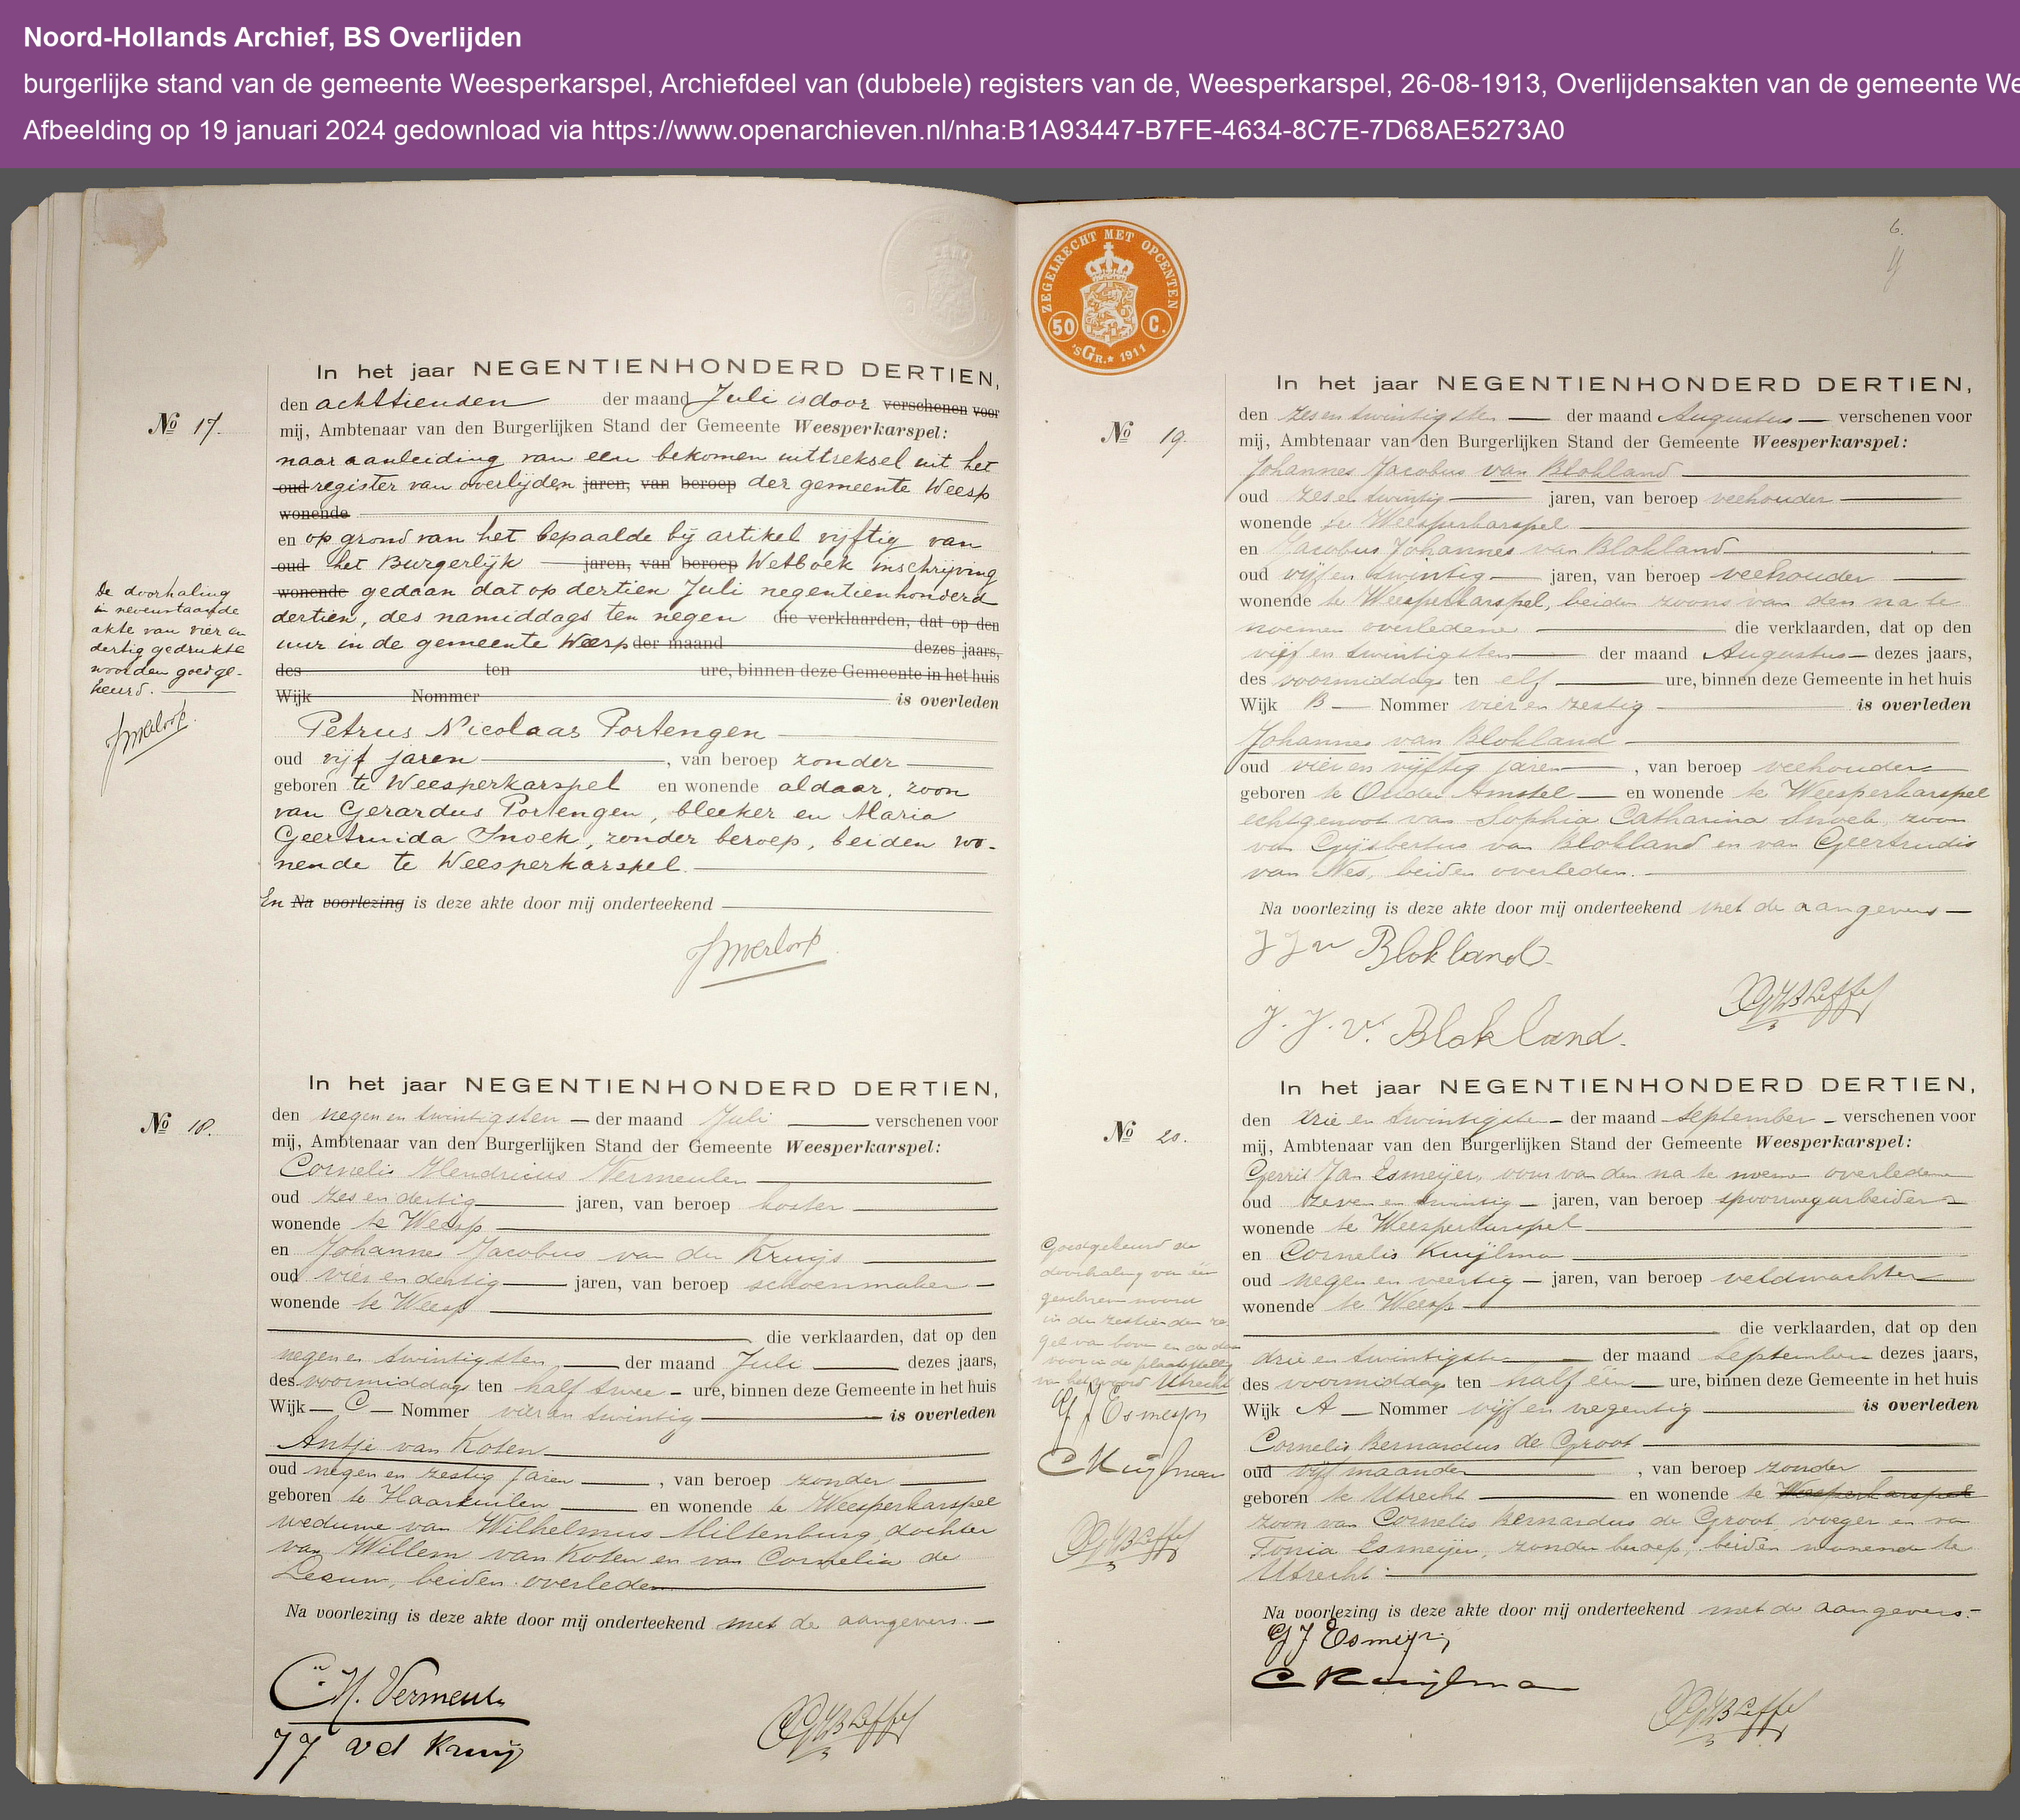 Noord-Hollands Archief, BS Overlijden
burgerlijke stand van de gemeente Weesperkarspel, Archiefdeel van (dubbele) registers van de, Weesperkarspel, 26-08-1913, Overlijdensakten van de gemeente We
Afbeelding op 19 januari 2024 gedownload via https://www.openarchieven.nl/nha:B1A93447-B7FE-4634-8C7E-7D68AE5273A0
In het jaar NEGENTIENHONDERD DERTIEN,
No 17.
den achttienden der maand Juli is door verschenen voor
mij, Ambtenaar van den Burgerlijken Stand der Gemeente Weesperkarspel:
naar aanleiding van een bekomen uittreksel uit het
oud register van overlijden jaren, van beroep der gemeente Weesp
wonende
en op grond van het bepaalde bij artikel vijftig van
oud het Burgerlijk jaren, van beroep Wetboek inschrijving
wonende gedaan dat op dertien Juli negentienhonderd
dertien, des namiddags ten negen die verklaarden, dat op den
uur in de gemeente Weesp der maand dezes jaars,
des ten ure, binnen deze Gemeente in het huis
Wijk Nommer is overleden
Petrus Nicolaas Portengen
oud vijf jaren, van beroep zonder
geboren te Weesperkarspel en wonende aldaar, zoon
van Gerardus Portengen, bleeker en Maria
Geertruida Snoek, zonder beroep, beiden wo-
nende te Weesperkarspel.
En Na voorlezing is deze akte door mij onderteekend
De doorhaling
in nevenstaande
akte van vier en
dertig gedrukte
woorden goedge-
keurd.
In het jaar NEGENTIENHONDERD DERTIEN,
No 18.
den negen en twintigsten der maand Juli verschenen voor
mij, Ambtenaar van den Burgerlijken Stand der Gemeente Weesperkarspel:
Cornelis Hendricus Vermeulen
oud zes en dertig jaren, van beroep koster
wonende te Weesp
en Johannes Jacobus van der Kruijs
oud vier en dertig jaren, van beroep schoenmaker
wonende te Weesp
die verklaarden, dat op den
negen en twintigsten der maand Juli dezes jaars,
des voormiddags ten half twee ure, binnen deze Gemeente in het huis
Wijk C Nommer vier en twintig is overleden
Antje van Koten
oud negen en zestig jaren, van beroep zonder
geboren te Haarzuilen en wonende te Weesperkarspel
weduwe van Wilhelmus Miltenburg, dochter
van Willem van Koten en van Cornelia de
Leeuw, beiden overleden
Na voorlezing is deze akte door mij onderteekend met de aangevers.
C.H. Vermeulen
JJ vd Kruijs
ZEGELRECHT MET OPCENTEN
50 C.
'sGR. 1911
6.
In het jaar NEGENTIENHONDERD DERTIEN,
No 19.
den zes en twintigsten der maand Augustus verschenen voor
mij, Ambtenaar van den Burgerlijken Stand der Gemeente Weesperkarspel:
Johannes Jacobus van Blokland
oud zes en twintig jaren, van beroep veehouder
wonende te Weesperkarspel
en Jacobus Johannes van Blokland
oud vijf en twintig jaren, van beroep veehouder
wonende te Weesperkarspel, beiden zoons van den na te
noemen overledene die verklaarden, dat op den
vijf en twintigsten der maand Augustus dezes jaars,
des voormiddags ten elf ure, binnen deze Gemeente in het huis
Wijk B Nommer vier en zestig is overleden
Johannes van Blokland
oud vier en vijftig jaren, van beroep veehouder
geboren te Ouder Amstel en wonende te Weesperkarspel
echtgenoot van Sophia Catharina Snoek, zoon
van Gijsbertus van Blokland en van Geertrudis
van Nes, beiden overleden.
Na voorlezing is deze akte door mij onderteekend met de aangevers
J J v Blokland
J. J. v. Blokland.
In het jaar NEGENTIENHONDERD DERTIEN,
No 20.
den drie en twintigsten der maand September verschenen voor
mij, Ambtenaar van den Burgerlijken Stand der Gemeente Weesperkarspel:
Gerrit Jan Esmeijer, oom van den na te noemen overledene
oud zeven en twintig jaren, van beroep spoorwegarbeider
wonende te Weesperkarspel
en Cornelis Kuijlman
oud negen en veertig jaren, van beroep veldwachter
wonende te Weesp
die verklaarden, dat op den
drie en twintigsten der maand September dezes jaars,
des voormiddags ten half één ure, binnen deze Gemeente in het huis
Wijk A Nommer vijf en negentig is overleden
Cornelis Bernardus de Groot
oud vijf maanden, van beroep zonder
geboren te Utrecht en wonende te Weesperkarspel
zoon van Cornelis Bernardus de Groot, voeger en van
Tonia Esmeijer, zonder beroep, beiden wonende te
Utrecht
Na voorlezing is deze akte door mij onderteekend met de aangevers.
GJ Esmeijer
C Kuijlman
Goedgekeurd de
doorhaling van één
geschreven woord
in den zestienden re
gel van boven en de daar
voor in de plaatstelling
van het woord Utrecht
G J Esmeijer
C Kuijlman